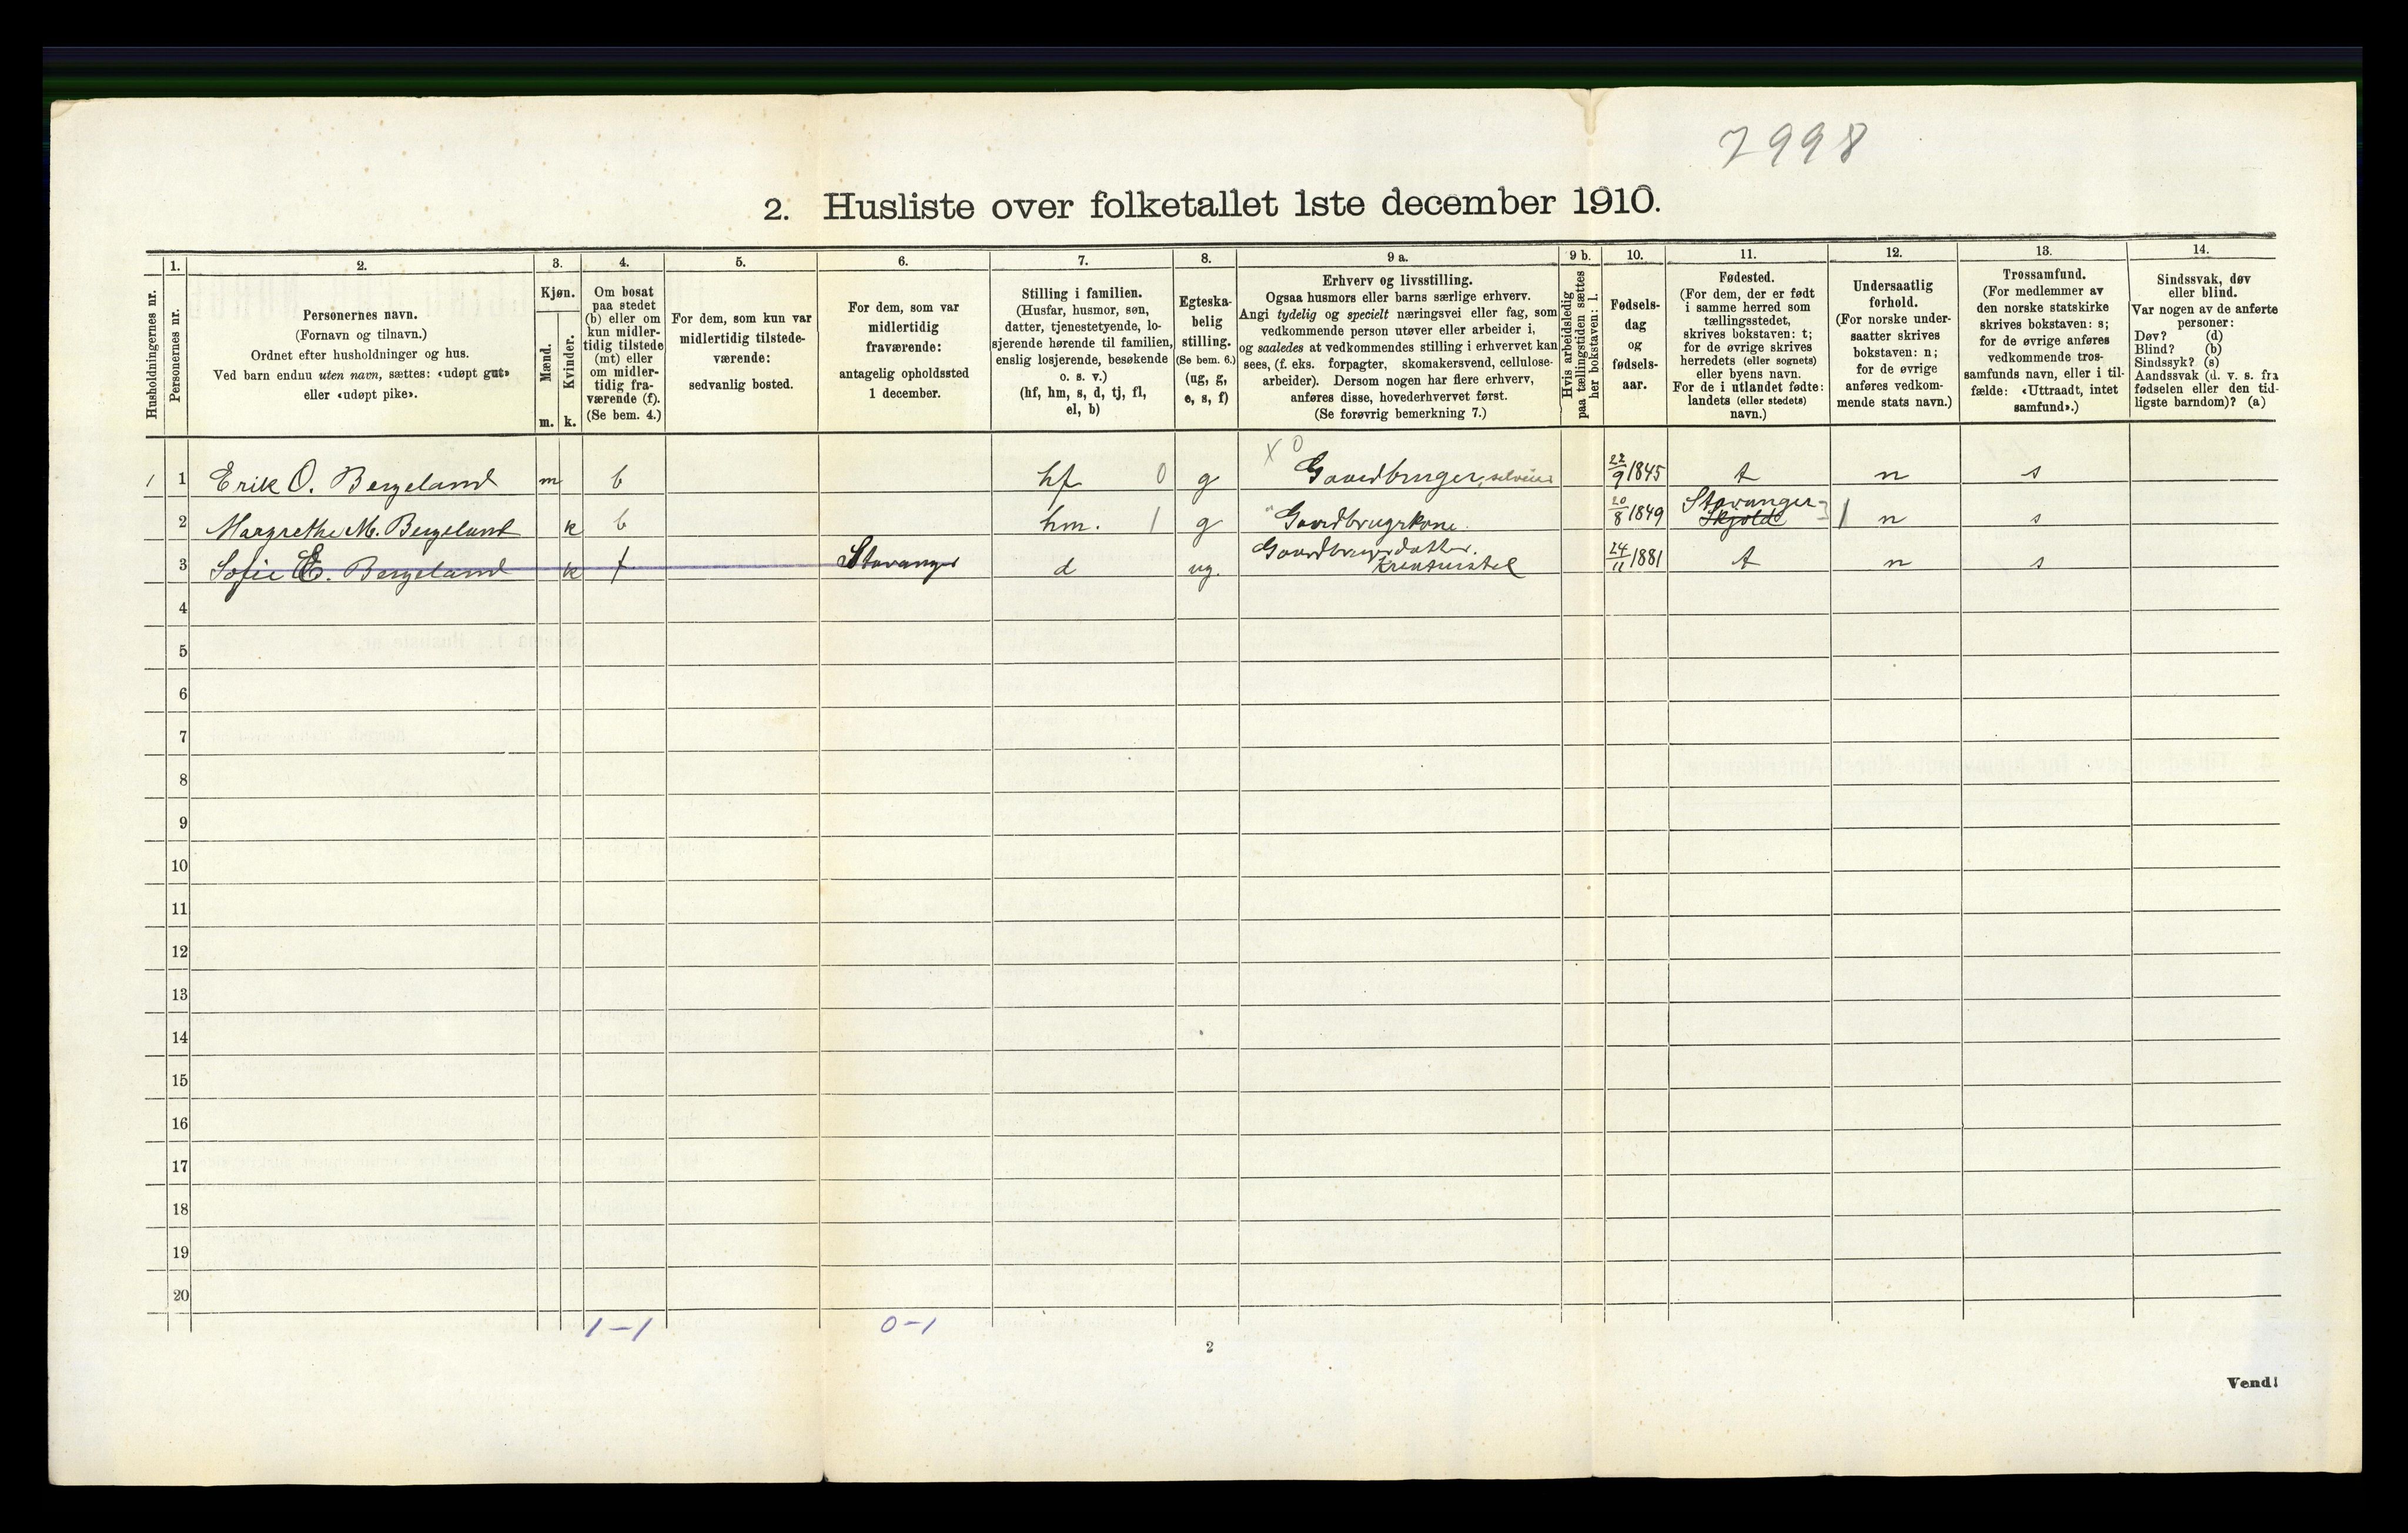 7998
2. Husliste over folketallet 1ste december 1910.
Husholdningernes nr.
1.
Personernes nr.
2.
Personernes navn.
(Fornavn og tilnavn.)
Ordnet efter husholdninger og hus.
Ved barn endnu uten navn, sættes: «udøpt gut»
eller «udøpt pike».
3.
Kjøn.
Mænd.
Kvinder.
m. k.
4.
Om bosat
paa stedet
(b) eller om
kun midler-
tidig tilstede
(mt) eller
om midler-
tidig fra-
værende (f).
(Se bem. 4.)
5.
For dem, som kun var
midlertidig tilstede-
værende:
sedvanlig bosted.
6.
For dem, som var
midlertidig
fraværende:
antagelig opholdssted
1 december.
7.
Stilling i familien.
(Husfar, husmor, søn,
datter, tjenestetyende, lo-
sjerende hørende til familien,
enslig losjerende, besøkende
o. s. v.)
(hf, hm, s, d, tj, fl,
el, b)
8.
Egteska-
belig
stilling.
(Se bem. 6.)
(ug, g,
e, s, f)
9 a.
Erhverv og livsstilling.
Ogsaa husmors eller barns særlige erhverv.
Angi tydelig og specielt næringsvei eller fag, som
vedkommende person utøver eller arbeider i,
og saaledes at vedkommendes stilling i erhvervet kan
sees, (f. eks. forpagter, skomakersvend, cellulose-
arbeider). Dersom nogen har flere erhverv,
anføres disse, hovederhvervet først.
(Se forøvrig bemerkning 7.)
9 b.
Hvis arbeidsledig
paa tællingstiden sættes
her bokstaven: l.
10.
Fødsels-
dag
og
fødsels-
aar.
11.
Fødested.
(For dem, der er født
i samme herred som
tællingsstedet,
skrives bokstaven: t;
for de øvrige skrives
herredets (eller sognets)
eller byens navn.
For de i utlandet fødte:
landets (eller stedets)
navn.)
12.
Undersaatlig
forhold.
(For norske under-
saatter skrives
bokstaven: n;
for de øvrige
anføres vedkom-
mende stats navn.)
13.
Trossamfund.
(For medlemmer av
den norske statskirke
skrives bokstaven: s;
for de øvrige anføres
vedkommende tros-
samfunds navn, eller i til-
fælde: «Uttraadt, intet
samfund».)
14.
Sindssvak, døv
eller blind.
Var nogen av de anførte
personer:
Døv? (d)
Blind? (b)
Sindssyk? (s)
Aandssvak (d. v. s. fra
fødselen eller den tid-
ligste barndom)? (a)
X 0
1 1 Erik O. Bergeland m b hf 0 g Gaardbruger, selveier 22/9 1845 t n s
2 Margrethe M. Bergeland k b hm. 1 g Gaardbrugrkone. 20/8 1849 Stavanger Skjold 1 n s
3 Sofie E. Bergeland k f Stavanger d ug. Gaardbrugerdatter. Kreaturstel 24/11 1881 t n s
4
5
6
7
8
9
10
11
12
13
14
15
16
17
18
19
20
1-1 0-1
2
Vend!